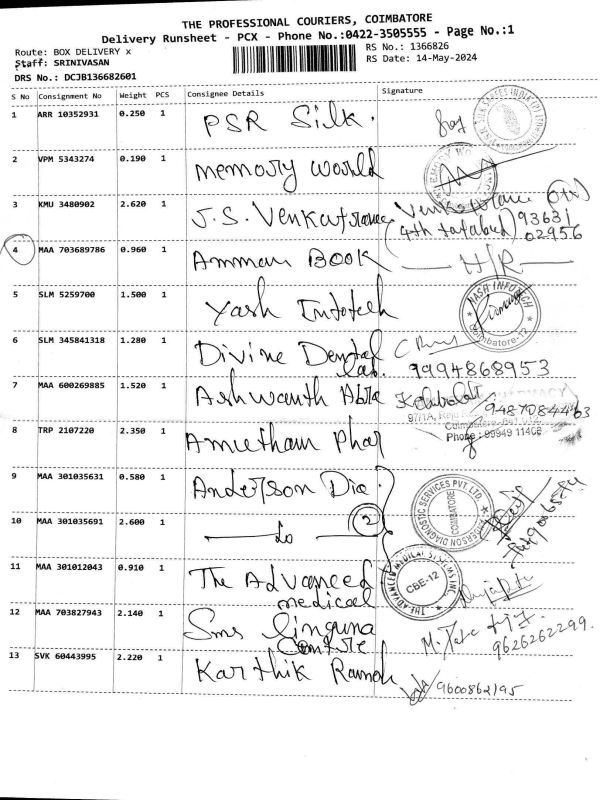 THE PROFESSIONAL COURIERS, COIMBATORE
Delivery Runsheet - PCX - Phone No.:0422-3505555 - Page No.:1
Route: BOX DELIVERY x
Staff: SRINIVASAN
DRS No.: DCJB136682601
RS No.: 1366826
RS Date: 14-May-2024
S No Consignment No Weight PCS Consignee Details Signature
1 ARR 10352931 0.250 1 PSR Silk.
2 VPM 5343274 0.190 1 memory world
3 KMU 3480902 2.620 1 J.S.
(4th 93631
02956
4 MAA 703689786 0.960 1 Amman BOOK H/R
5 SLM 5259700 1.500 1 Yash Infotech
YASH INFOTECH
Coimbatore-12
6 SLM 345841318 1.280 1 Divine Dental
Lab. 9994868953
7 MAA 600269885 1.520 1 Ashwanth
97/1A,
8 TRP 2107220 2.350 1 Phar
Phone:
9 MAA 301035631 0.580 1 Anderson Dia.
ANDERSON DIAGNOSTIC SERVICES PVT. LTD.
COIMBATORE
10 MAA 301035691 2.600 1 do 2
11 MAA 301012043 0.910 1 The Advanced
medical
THE ADVANCED MEDICAL SYSTEMS INC.
CBE-12
12 MAA 703827943 2.140 1 Sms
9626262299.
13 SVK 60443995 2.220 1 Karthik
9600862195